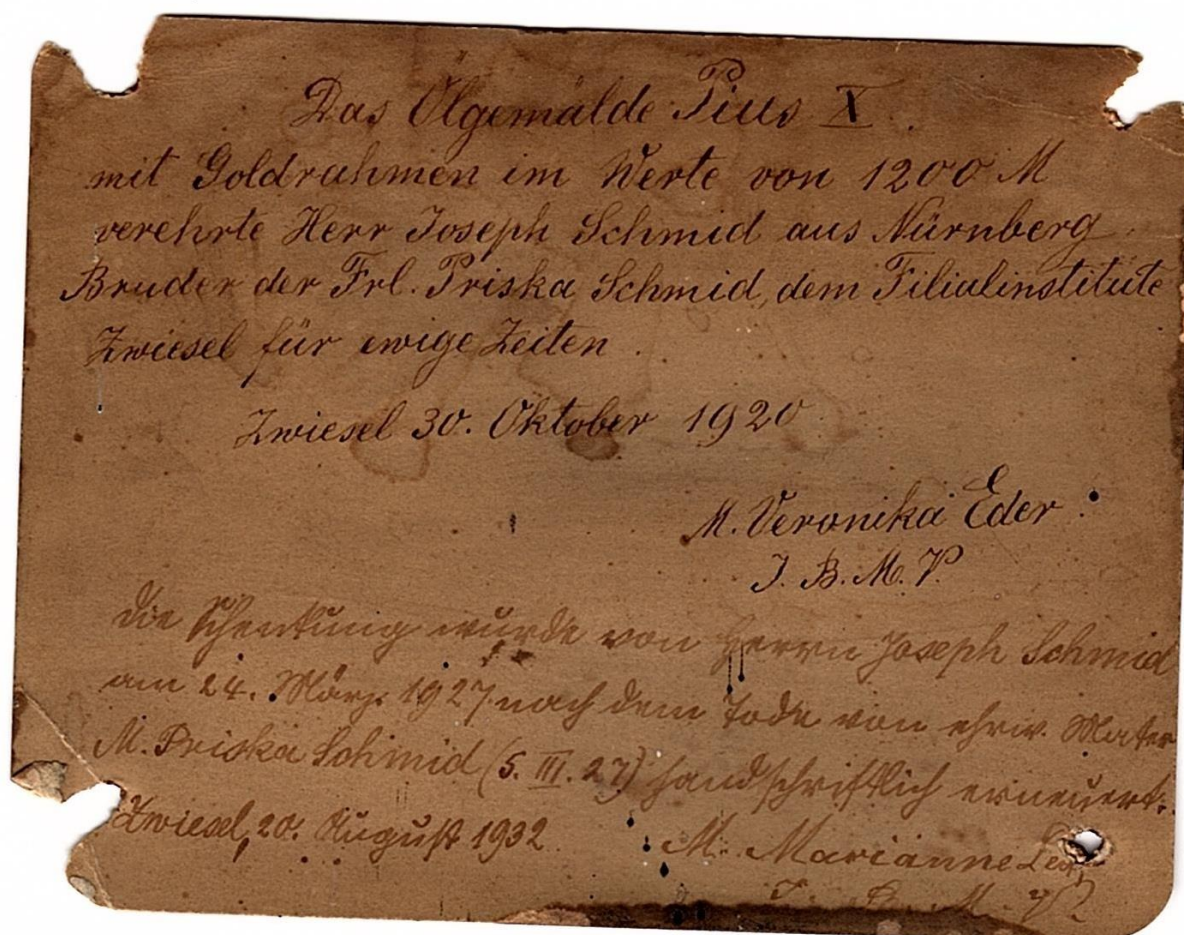 Das Ölgemälde Pius X.
mit Goldrahmen im Werte von 1200 M
verehrte Herr Joseph Schmid aus Nürnberg.
Bruder der Frl. Priska Schmid, dem Filialinstitute
Zwiesel für ewige Zeiten.
Zwiesel 30. Oktober 1920
M. Veronika Eder.
I. B. M. V.
Die Schenkung wurde von Herrn Joseph Schmid
am 24. März 1927 nach dem Tode von ehrw. Mater
M. Priska Schmid (5. III. 27) handschriftlich erneuert.
Zwiesel, 20. August 1932.
M. Marianne
I. B. M. V.